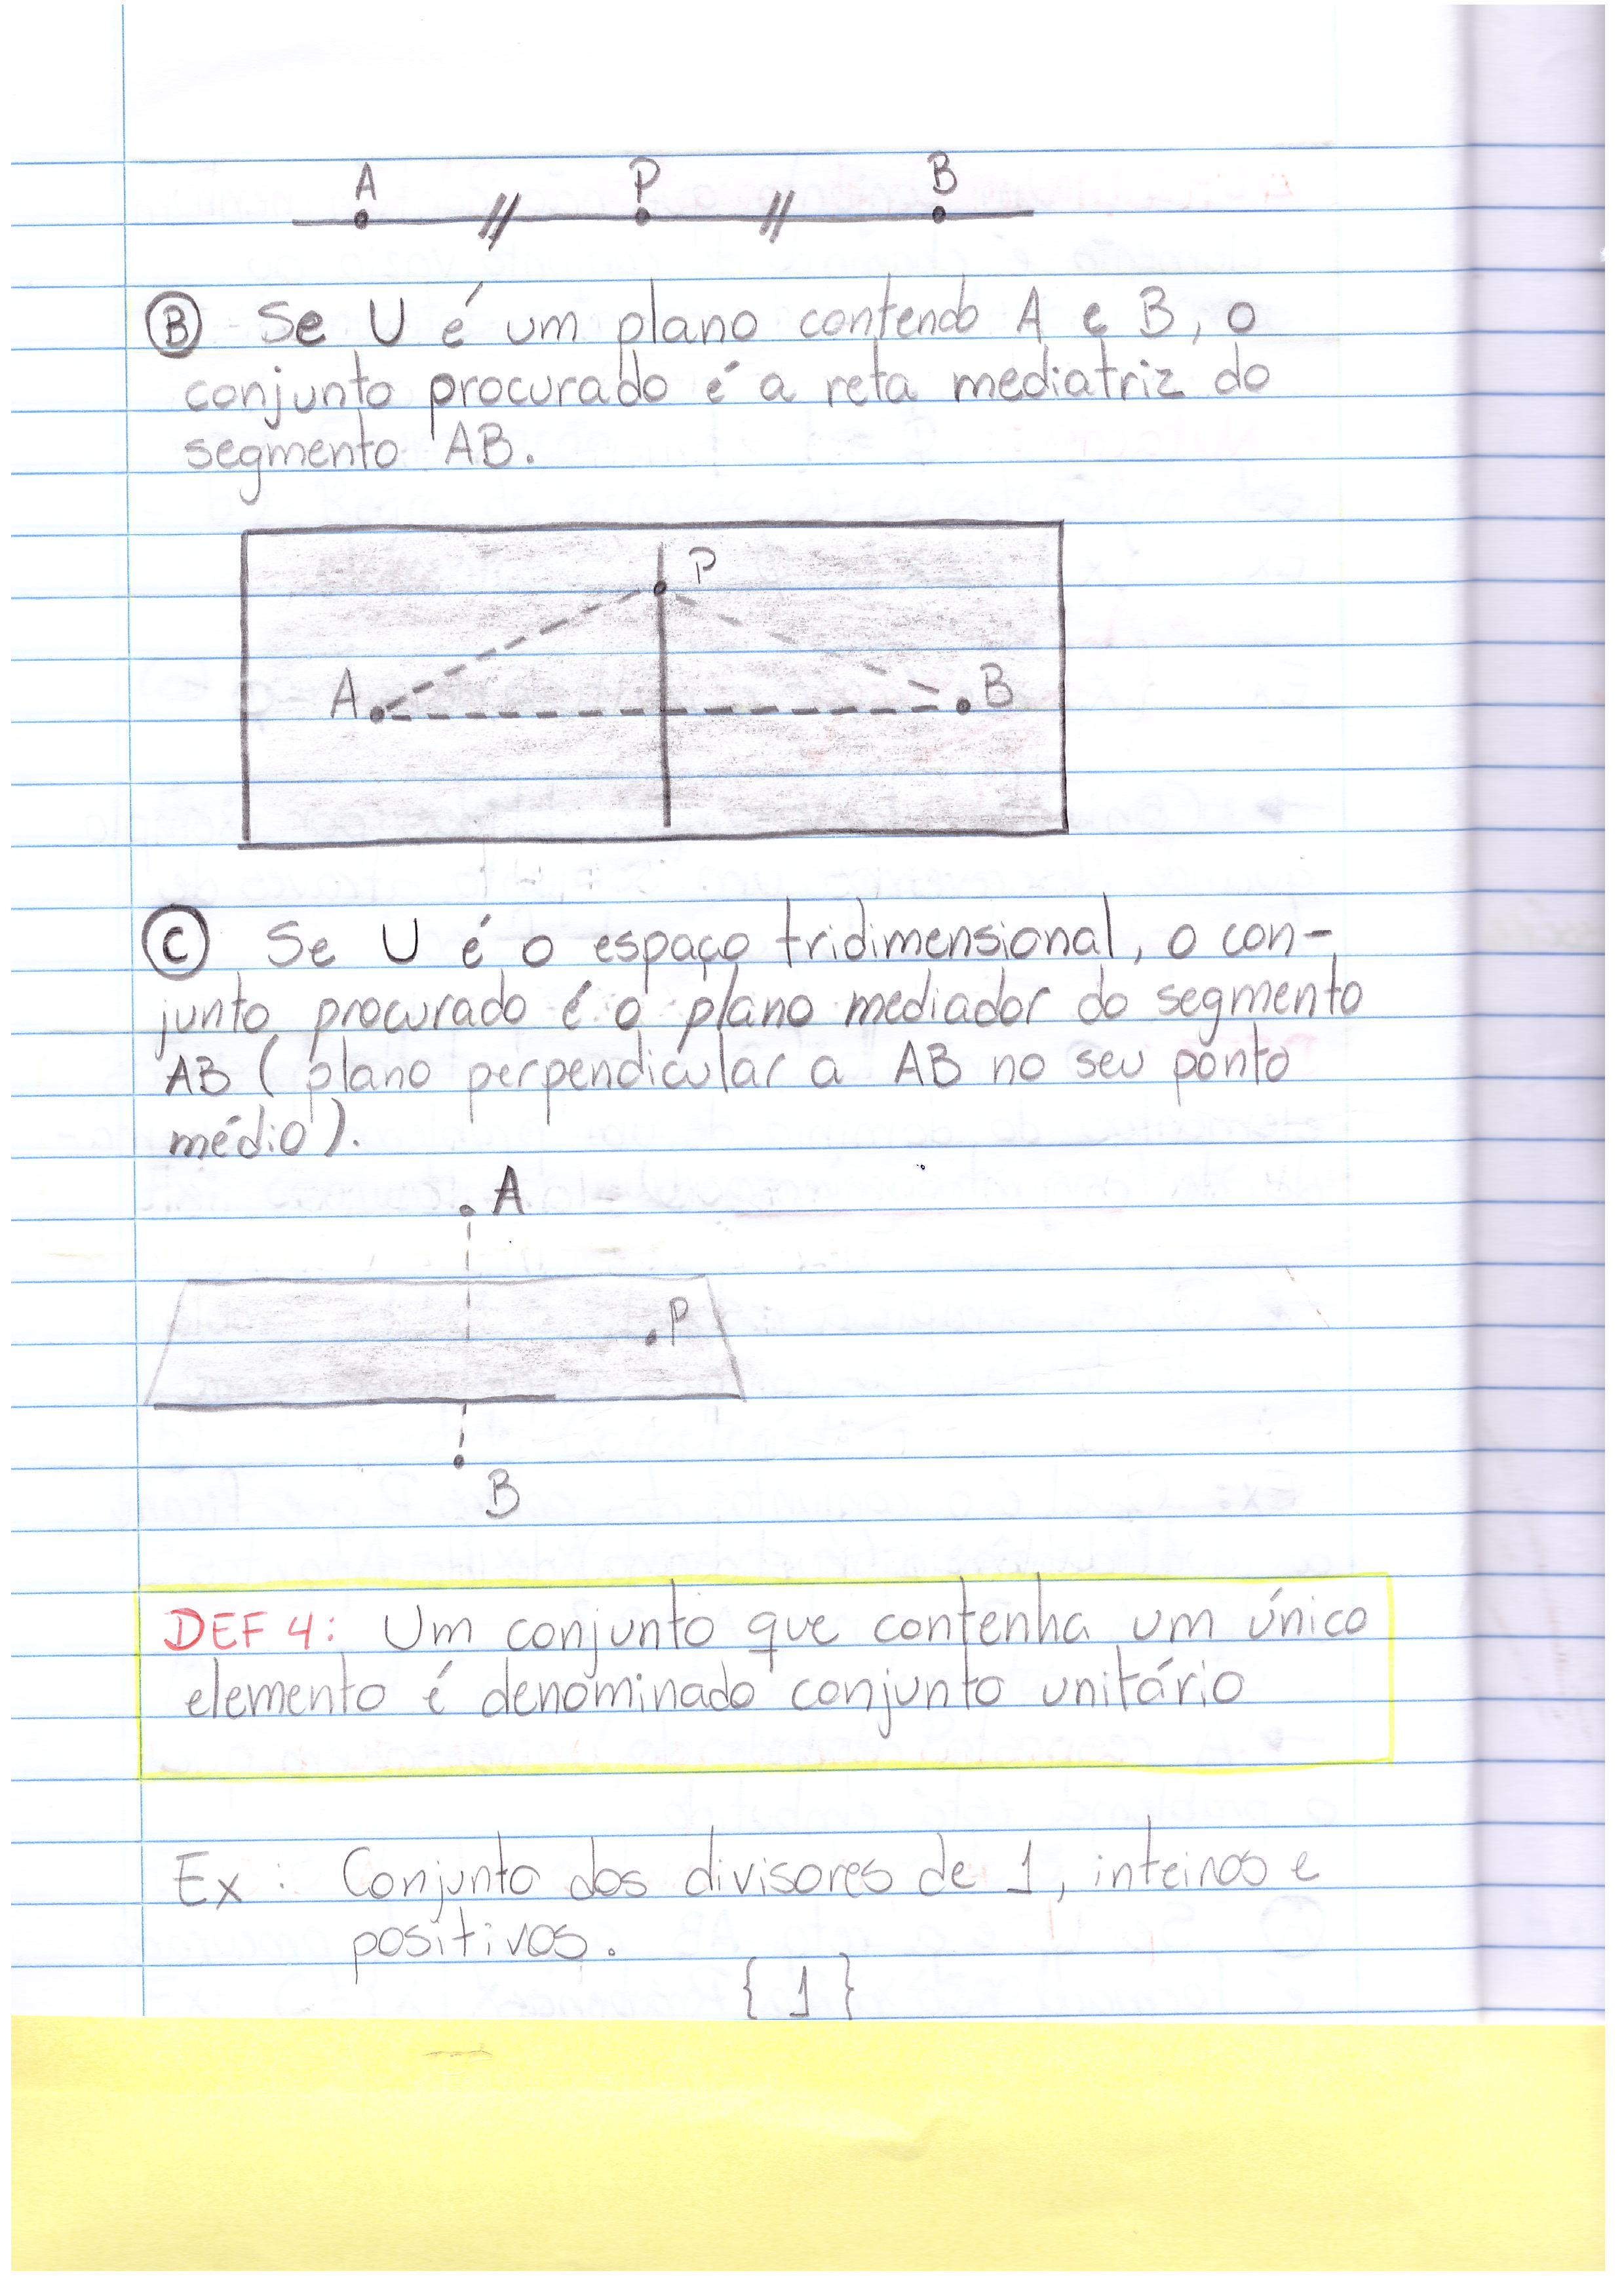 A P B
B Se U é um plano contendo A e B, o
conjunto procurado é a reta mediatriz do
segmento AB.
P
A B
C Se U é o espaço tridimensional, o con-
junto procurado é o plano mediador do segmento
AB (plano perpendicular a AB no seu ponto
médio).
A
P
B
DEF 4: Um conjunto que contenha um único
elemento é denominado conjunto unitário
Ex: Conjunto dos divisores de 1, inteiros e
positivos.
{1}